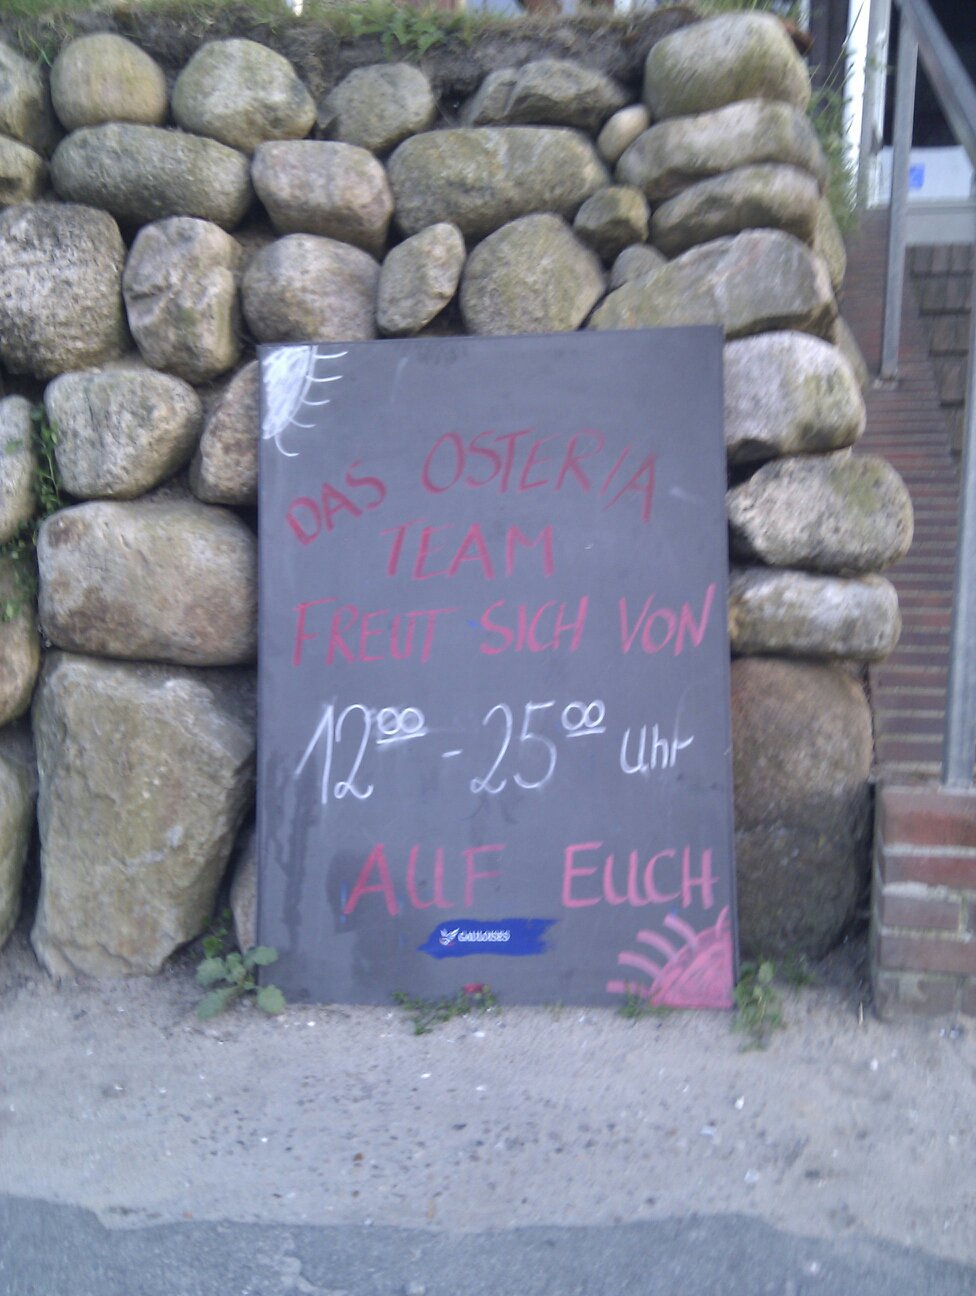 DAS OSTERIA
TEAM
FREUT SICH VON
12⁰⁰ - 25⁰⁰ Uhr
AUF EUCH
GAULOISES